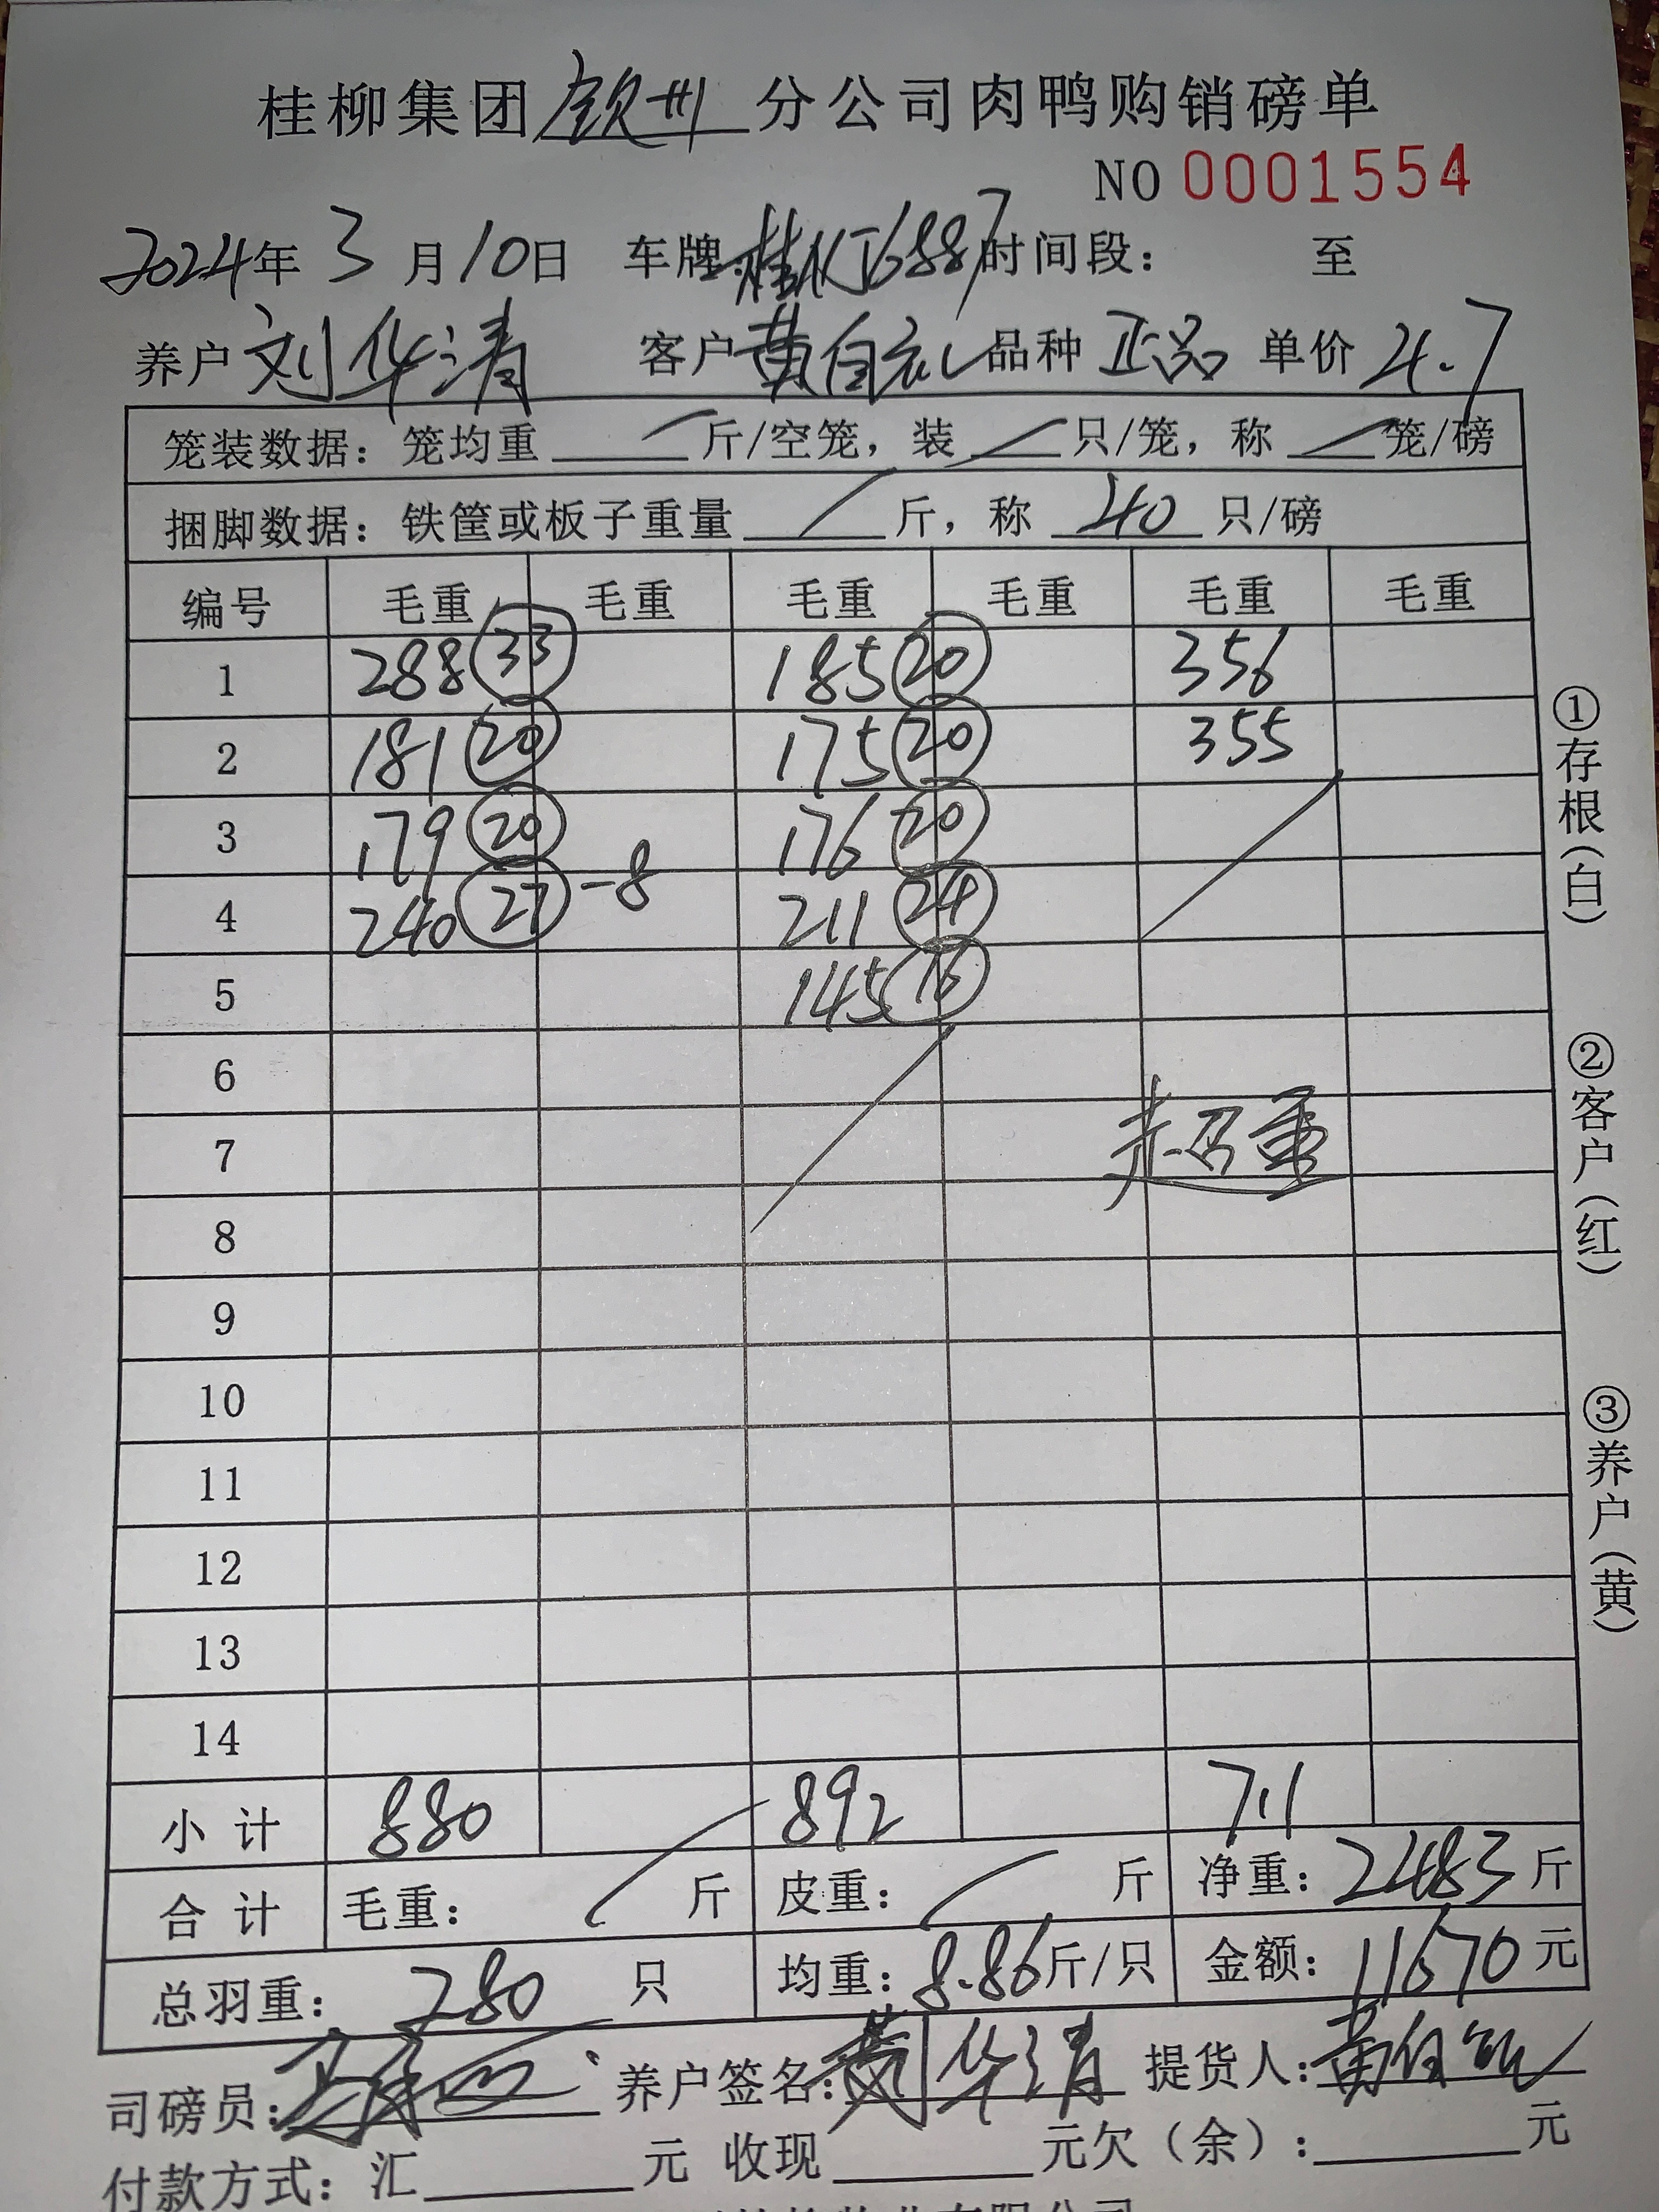 桂柳集团钦州分公司肉鸭购销磅单
NO 0001554
2024年 3 月 10日 车牌:桂KJ6887 时间段: 至
养户 刘华清 客户 黄自礼 品种 正品 单价 4.7
笼装数据: 笼均重 / 斤/空笼, 装 / 只/笼, 称 / 笼/磅
捆脚数据: 铁筐或板子重量 / 斤, 称 40 只/磅
编号 毛重 毛重 毛重 毛重 毛重 毛重
1 288 33 185 20 356
2 181 20 175 20 355
3 179 20 176 20
4 240 27 -8 211 24
5 145 16
6
7 超重
8
9
10
11
12
13
14
小 计 880 892 711
合 计 毛重: / 斤 皮重: / 斤 净重: 2483 斤
总羽重: 280 只 均重: 8.86斤/只 金额: 11670 元
司磅员: 养户签名: 刘华清 提货人: 黄自礼
付款方式: 汇 元 收现 元 欠(余): 元
①存根(白)
②客户(红)
③养户(黄)